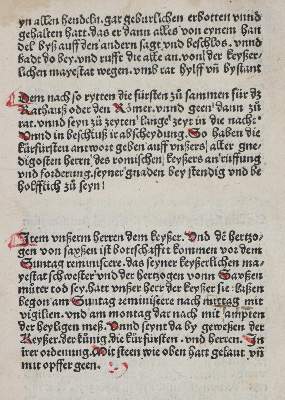 yn allen hendeln. gar geburlichen erbotten vnnd
gehalten hatt. das er dann alles von eynem han
del byß auff den andern sagt vnd beschlos. vnnd
badt do bey. vnd rufft die alle an. von der keyßer-
lichen mayestat wegen. vmb rat hylff vñ bystant
Dem nach so rytten die fürsten zu sammen für dz
Rathauß oder den Römer. vnnd geen dann zů
rat. vnnd seyn zů zeyten lange zeyt in die nacht
Vnnd in beschluß ir abscheydung. So haben die
kürfürsten antwort geben auff vnßers aller gne
digosten herrn des romischen keyßers anrüffung
vnd forderung. seyner gnaden bey stendig vnd be
holfflich zů seyn
Item vnßerm herren dem keyßer. Vnd dē hertzo-
gen von sayßen ist bottschafft kommen vor dem
Suntag reminiscere. das seyner keyserlichen ma
yestat schwester vnd der hertzogen vonn Sayßen
můter tod sey. hatt vnßer herr der keyßer sie laßen
begon am Suntag reminiscere nach mittag mit
vigilien. vnd am montag dar nach mit ampten
der heyligen meß. Vnnd seynt da by geweßen der
Keyßer. der künig. die kürfürsten. vnd herren. In
irer ordenung. Mit steen wie oben hatt gelaut vñ
mit opffer geen.